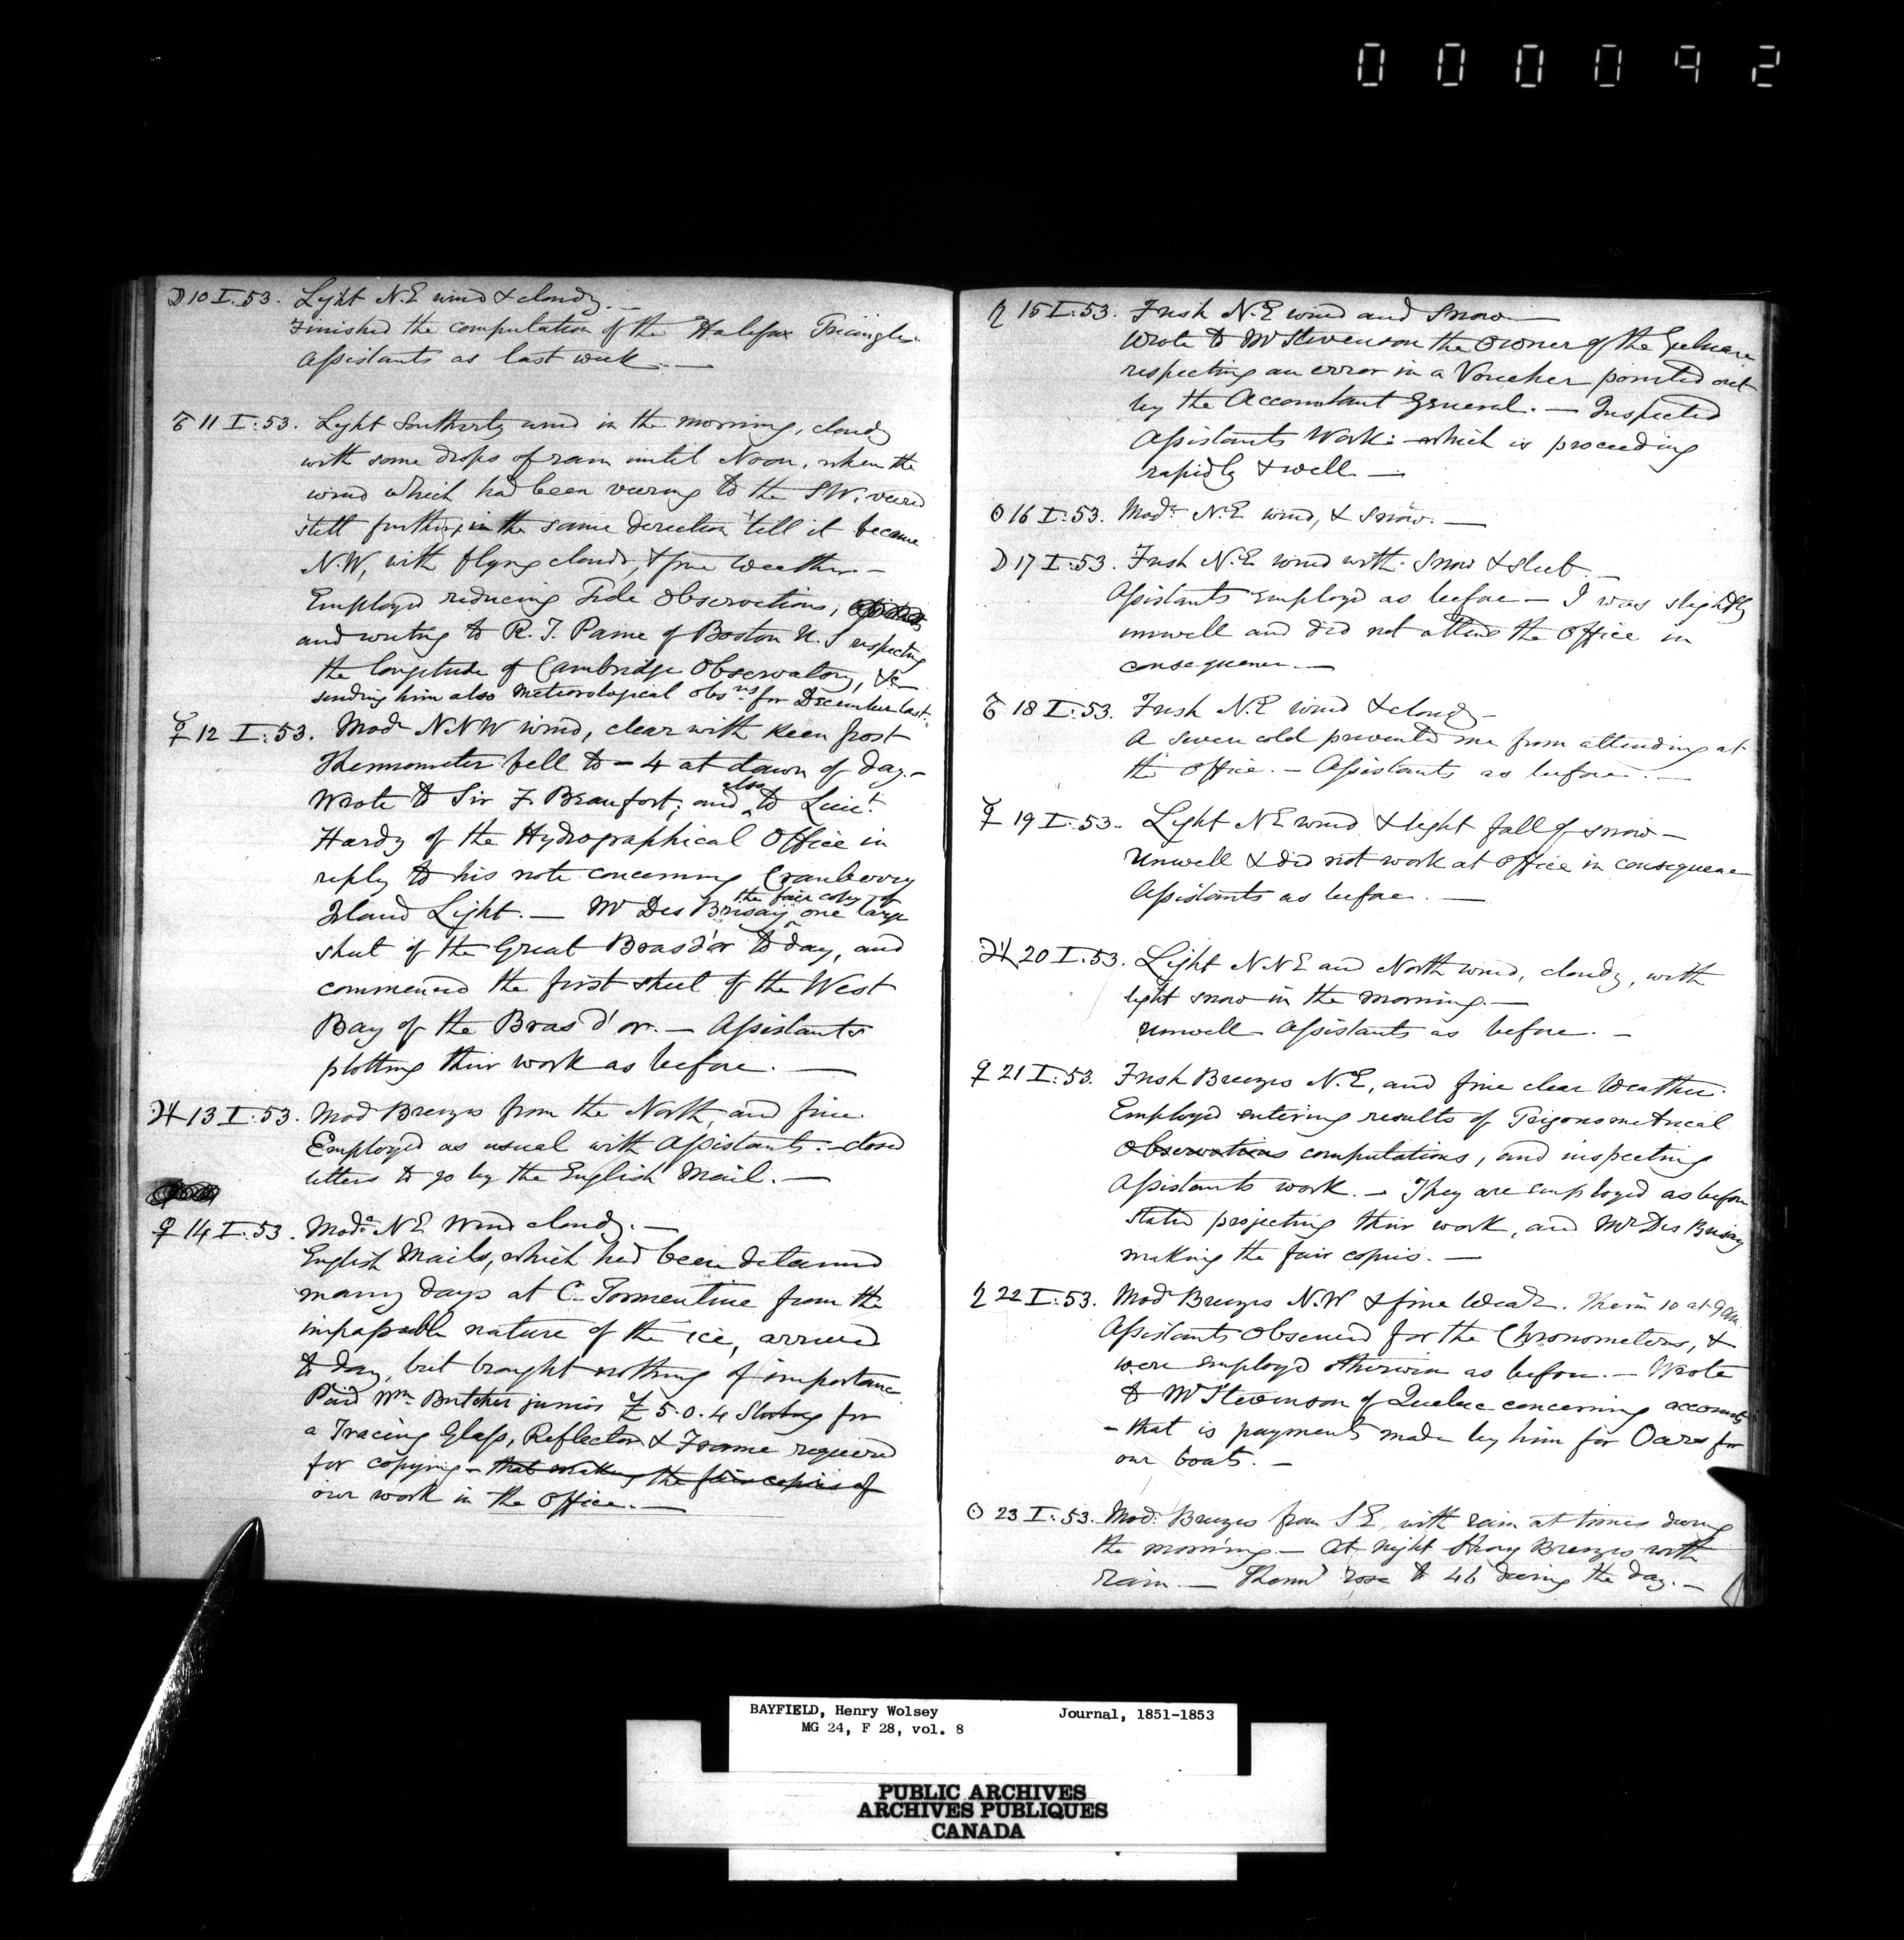 000092
☽ 10 I. 53. Light N.E wind & cloudy. —
Finished the computation of the Halifax Triangles.
Assistants as last week. —
♂ 11 I. 53. Light Southerly wind in the morning, cloudy
with some drops of rain until Noon, when the
wind which had been veering to the SW. veered
still further in the same direction 'till it became
N.W, with flying clouds, & fine Weather —
Employed reducing Tide Observations,
and writing to R. T. Paine of Boston U. S respecting
the longitude of Cambridge Observatory, &c
sending him also Meteorological Obsns for December last.
☿ 12 I. 53. Modr NNW wind, clear with keen frost
Thermometer fell to - 4 at dawn of day. -
Wrote to Sir F. Beaufort; and also to Lieut
Hardy of the Hydrographical Office in
reply to his note concerning Cranberry
Island Light. — Mr Des Brisay the fair copy of one large
sheet of the Great Bras d'or to day, and
commenced the first sheet of the West
Bay of the Bras d'or. — Assistants
plotting their work as before. —
♃ 13 I. 53. Mod Breezes from the North, and fine.
Employed as usual with Assistants. - closed
letters to go by the English Mail. —
♀ 14 I. 53. Modr NE Wind cloudy. —
English Mails, which had been detained
many days at C. Tormentine from the
impassable nature of the ice, arrived
to day, but brought nothing of importance
Paid Wm Butcher junior £ 5. 0. 4 Sterling for
a Tracing Glass, Reflector & Frame required
for copying - that making the fair copies of
our work in the Office. —
♄ 15 I. 53. Fresh N.E wind and Snow —
Wrote to Mr Stevenson the Owner of the Gulnare
respecting an error in a Voucher pointed out
by the Accountant General. — Inspected
Assistants Work: which is proceeding
rapidly & well —
☉ 16 I. 53. Modr N.E wind, & Snow. —
☽ 17 I. 53. Fresh N.E wind with Snow & sleet. —
Assistants Employed as before — I was slightly
unwell and did not attend the Office in
consequence. —
♂ 18 I. 53. Fresh N.E wind & cloudy —
A severe cold prevented me from attending at
the Office. — Assistants as before. —
☿ 19 I. 53. Light NE wind & light fall of snow —
Unwell & did not work at Office in consequence
Assistants as before. —
♃ 20 I. 53. Light NNE and North wind, cloudy, with
light snow in the morning. —
Unwell Assistants as before. —
♀ 21 I. 53. Fresh Breezes N.E, and fine clear Weather.
Employed entering results of Trigonometrical
Observations computations, and inspecting
Assistants work. — They are employed as before
stated projecting their work, and Mr Des Brisay
making the fair copies. —
♄ 22 I. 53. Modr Breezes N.W & fine Weatr. Therm 10 at 9 am.
Assistants Observed for the Chronometers, &
were employed otherwise as before. — Wrote
to Mr Stevenson of Quebec concerning accounts
- that is payments made by him for Oars for
our boats. —
☉ 23 I. 53. Mod. Breezes from S E, with rain at times during
the morning. — At night strong Breezes with
rain. — Thermr rose to 46 during the day. —
BAYFIELD, Henry Wolsey Journal, 1851-1853
MG 24, F 28, vol. 8
PUBLIC ARCHIVES
ARCHIVES PUBLIQUES
CANADA